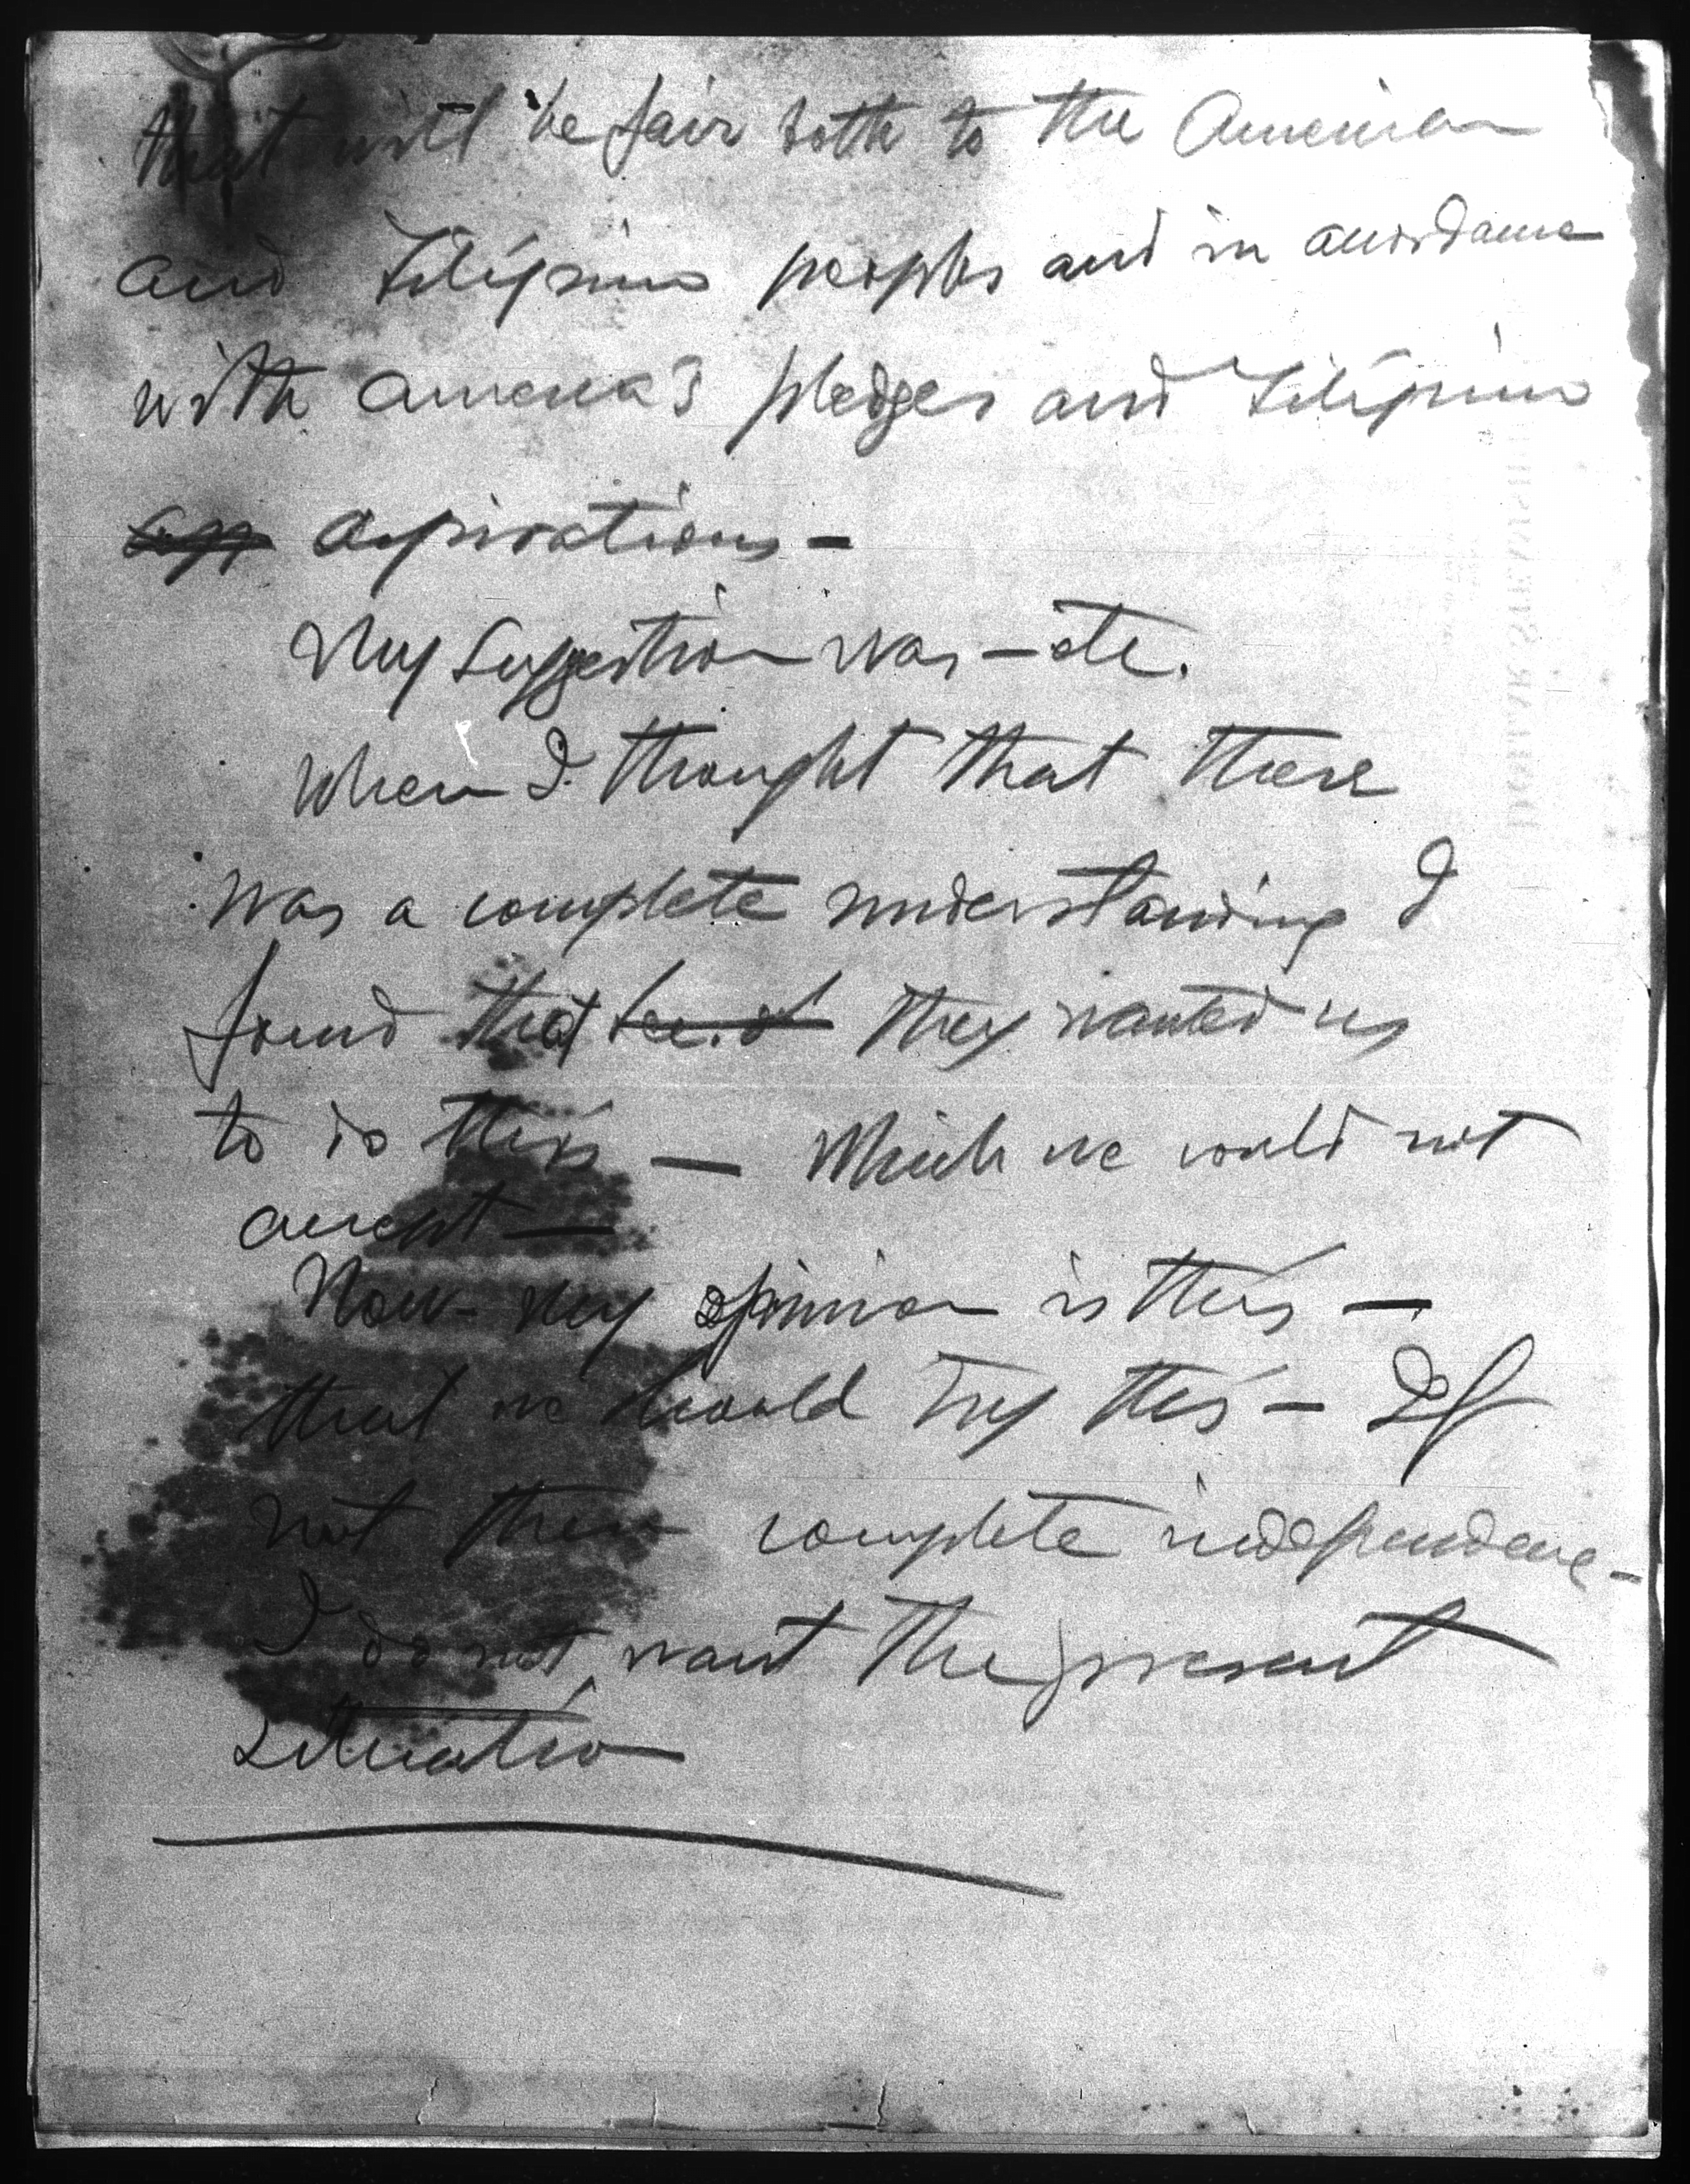 that will be fair both to the American
and Filipino peoples and in accordance
with America's pledges and Filipino
app aspirations –
My suggestion was – etc.
When I thought that there
was a complete understanding I
found that they wanted us
to do this — Which we could not
accept —
Now my opinion is this —
that we should try this – If
not then complete independence –
I do not want the present
situation